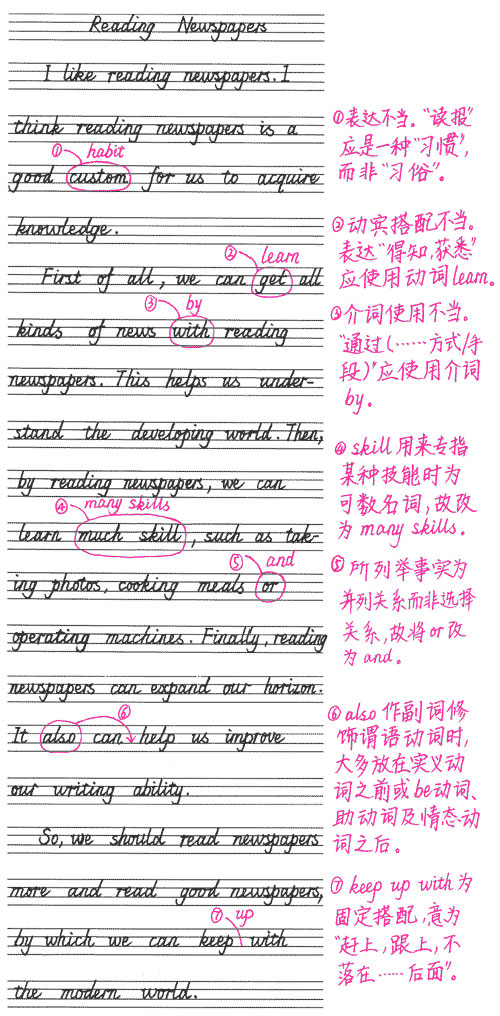 Reading Newspapers
I like reading newspapers. I
think reading newspapers is a
① habit
good custom for us to acquire
knowledge.
② learn
First of all, we can get all
③ by
kinds of news with reading
newspapers. This helps us under-
stand the developing world. Then,
by reading newspapers, we can
④ many skills
learn much skill, such as tak-
⑤ and
ing photos, cooking meals or
operating machines. Finally, reading
newspapers can expand our horizon.
⑥
It also can help us improve
our writing ability.
So, we should read newspapers
more and read good newspapers,
⑦ up
by which we can keep with
the modern world.
①表达不当。“读报”
应是一种“习惯”,
而非“习俗”。
②动宾搭配不当。
表达“得知,获悉”
应使用动词learn。
③介词使用不当。
“通过(……方式/手
段)”应使用介词
by。
④skill用来专指
某种技能时为
可数名词,故改
为many skills。
⑤所列举事实为
并列关系而非选择
关系,故将or改
为and。
⑥also作副词修
饰谓语动词时,
大多放在实义动
词之前或be动词、
助动词及情态动
词之后。
⑦keep up with为
固定搭配,意为
“赶上,跟上,不
落在……后面”。